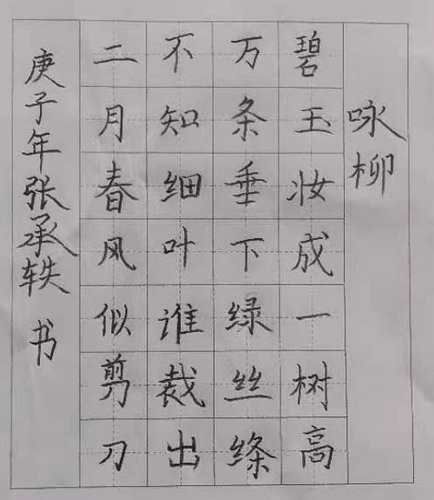 咏柳
碧玉妆成一树高
万条垂下绿丝绦
不知细叶谁裁出
二月春风似剪刀
庚子年张承轶书